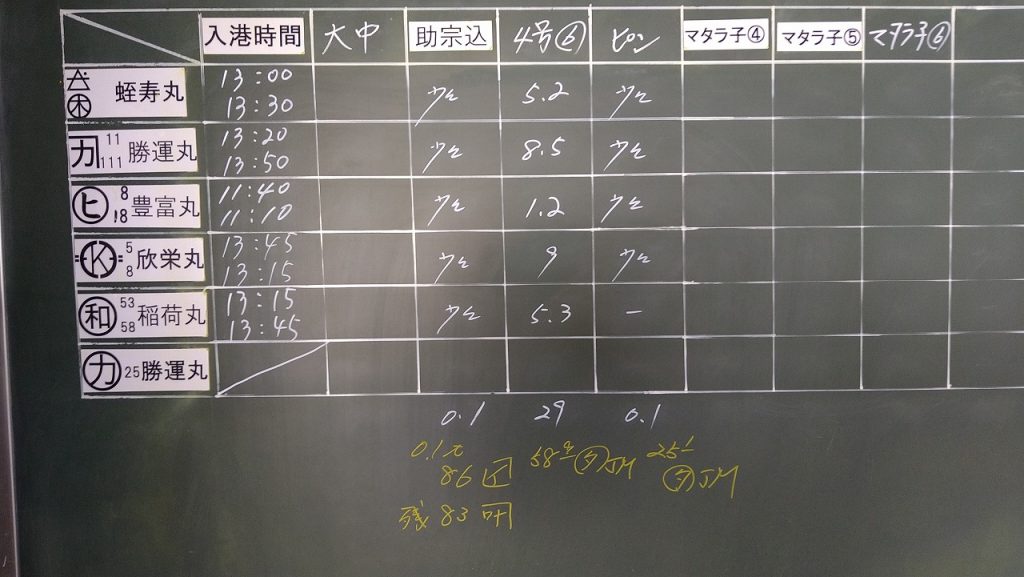 入港時間 大中 助宗込 4号⑥ ピン マタラ子④ マタラ子⑤ マタラ子⑥
蛭寿丸 13:00 13:30 少々 5.2 少々
カ 11 111 勝運丸 13:20 13:50 少々 8.5 少々
ヒ 8 18 豊富丸 11:40 11:10 少々 1.2 少々
K 5 8 欣栄丸 13:45 13:15 少々 9 少々
和 53 58 稲荷丸 13:15 13:45 少々 5.3 -
カ 25 勝運丸
0.1 29 0.1
0.1
86
58 JM 25
JM
残 83